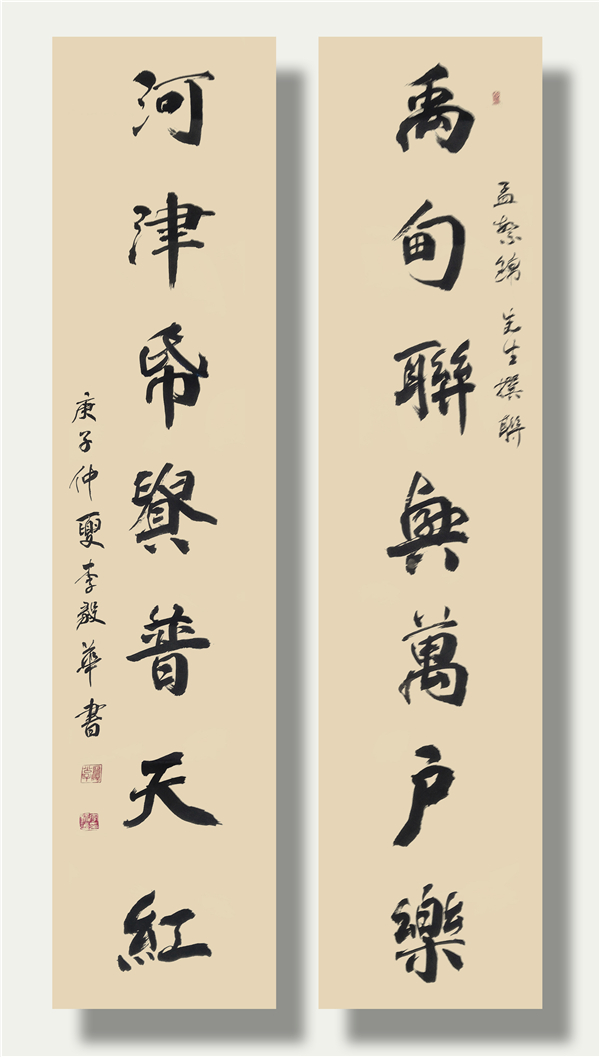 孟繁錦 先生撰聯
禹甸聯興萬户樂
河津帋貴普天紅
庚子仲夏李毅華書